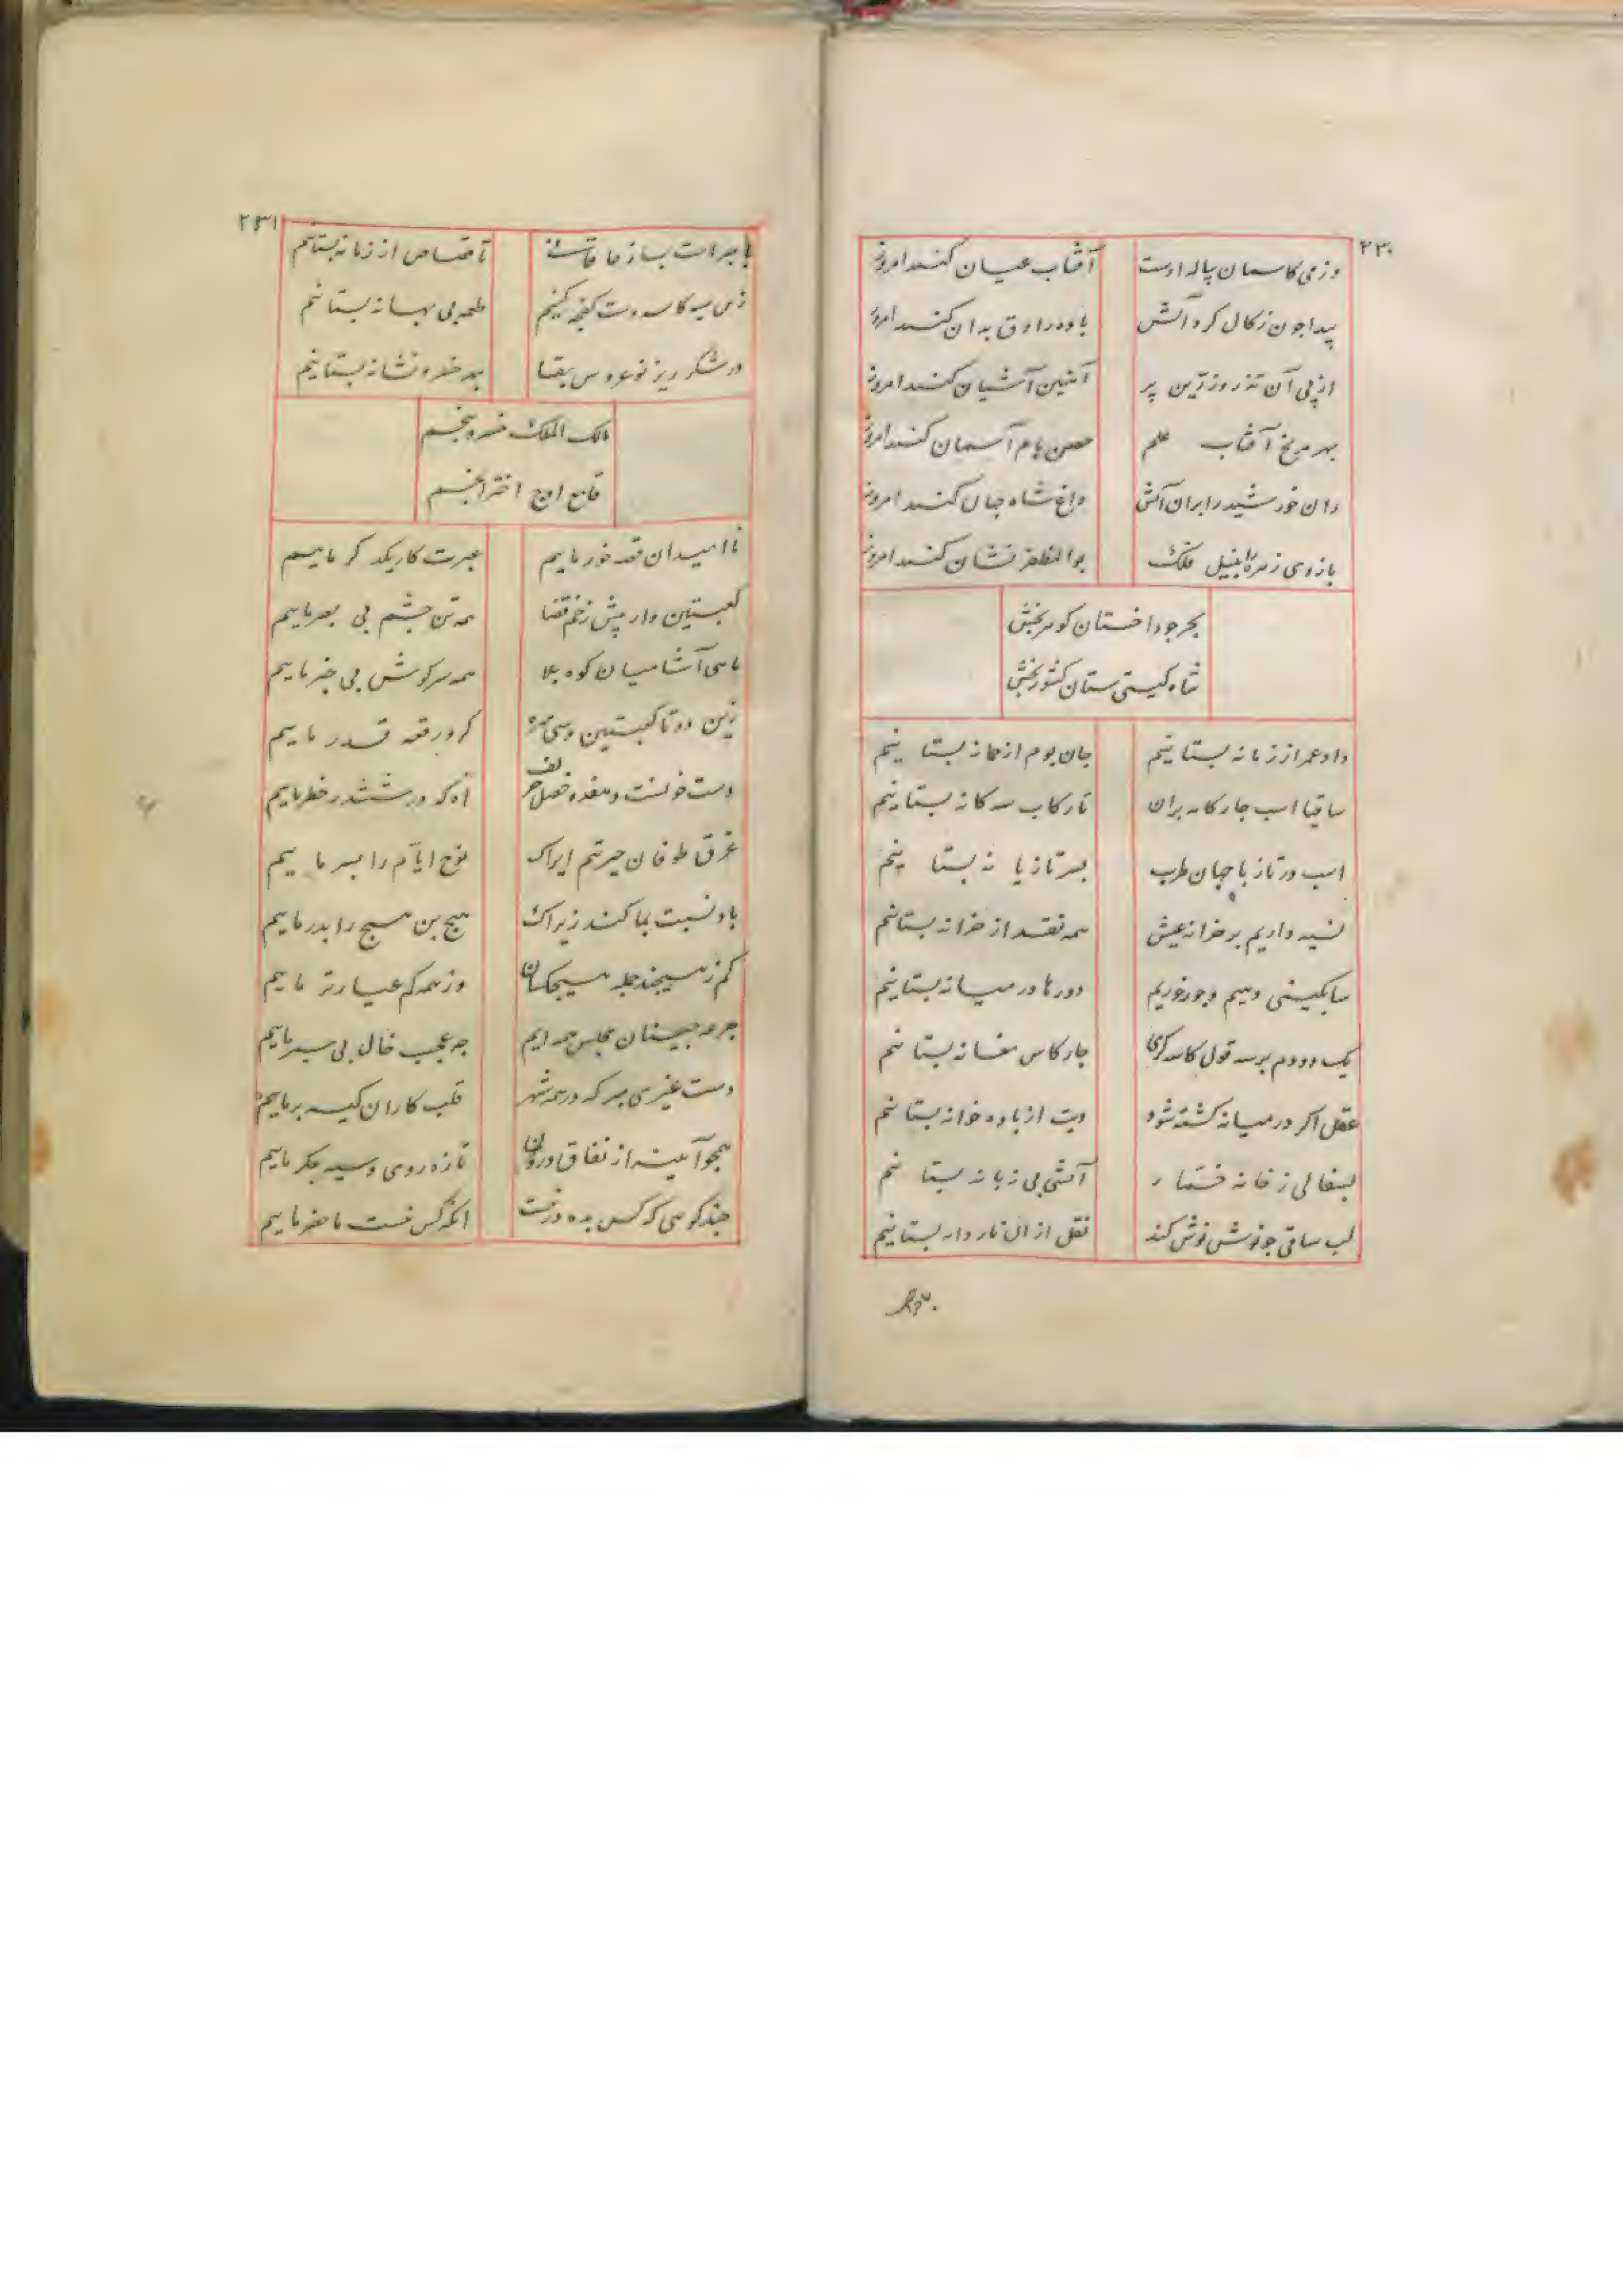 ۲۳۰
وز می کاسمان پیاله اوست آفتاب عیان کنند امروز
بید را چون زکال کرد آتش باده راوق بدان کنند امروز
از پی آن تذرو زرین پر آهنین آشیان کنند امروز
بهر مریخ آفتاب علم حصن بام آسمان کنند امروز
ران خورشید را بران آتش داغ شاه جهان کنند امروز
بازوی زهره را بنیل فلک بوالمظفر نشان کنند امروز
بحر جود اخستان کوهر بخش
شاه کیتی ستان کشور بخش
داد عمر از زمانه بستانیم جان بوام از چمانه بستانیم
ساقیا اسب چار کامه بران تا رکاب سه کانه بستانیم
اسب در تاز با جهان طرب بسر تازیانه بستانیم
نسیه داریم بر خزانه عیش همه نقد از خزانه بستانیم
دورها در میانه بستانیم
یک دو دم بر سه قول کاسه کری چار کاس مغانه بستانیم
عقل اکر در میانه کشته شود دیت از باده خوانه بستانیم
بسفالی ز خانه خمار آتشی بی زبانه بستانیم
لب ساقی چو نوش نوش کند نقل از ان ناردانه بستانیم
۲۳۱
با جراحت بساز خاقانی تا قصاص از زمانه بستانیم
زین سیه کاسه دست کفچه کنیم طعمه بی بهانه بستانیم
در شکر ریز نوعروس بقا بهر خسرو نشانه بستانیم
مالک الملک خسرو پنجم
قامع اوج اختر انجم
نا امیدان غصه خور ماییم عبرت کار یکدکر ماییم
کعبتین وار پیش زخم قضا همه تن چشم بی بصر ماییم
ماهی آسا میان کوه بلا همه سر کوش بی خبر ماییم
زین دو تا کعبتین و سی مهره کرو رقعه قدر ماییم
دست خونست و هفده خصل حریف آه که در ششدر خطر ماییم
غرق طوفان حیرتیم ایراک نوح ایام را پسر ماییم
باد نسبت بما کند زیراک هیچ بن هیچ را پدر ماییم
کم ز هیچند جمله هیچکسان وز همه کم عیارتر ماییم
جرعه چینان مجلس همه ایم چه عجب خال بی سپر ماییم
دست غیری مبر که در همه شهر قلب کاران کیسه بر ماییم
همچو آیینه از نفاق درون تازه روی و سیه جکر ماییم
چند کویی که کس بده در نیست انکه کس نیست ماحضر ماییم